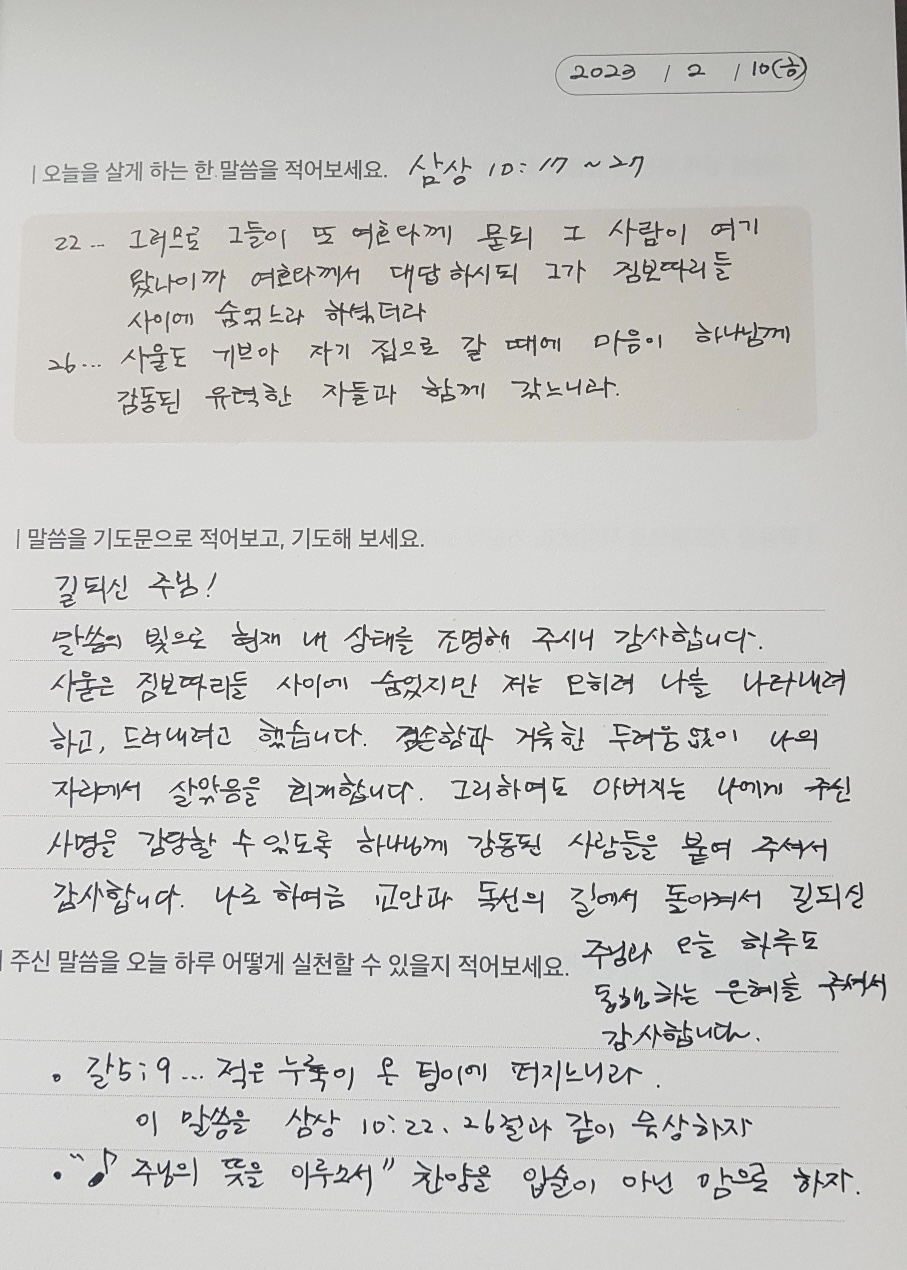 2023 / 2 / 10(금)
| 오늘을 살게 하는 한 말씀을 적어보세요. 삼상 10:17~27
22... 그러므로 그들이 또 여호와께 묻되 그 사람이 여기
왔나이까 여호와께서 대답하시되 그가 짐보따리들
사이에 숨었느니라 하셨더라
26... 사울도 기브아 자기 집으로 갈 때에 마음이 하나님께
감동된 유력한 자들과 함께 갔느니라.
| 말씀을 기도문으로 적어보고, 기도해 보세요.
길되신 주님!
말씀의 빛으로 현재 내 상태를 조명해 주시니 감사합니다.
사울은 짐보따리들 사이에 숨었지만 저는 오히려 나를 나타내려
하고, 드러내려고 했습니다. 겸손함과 거룩한 두려움 없이 나의
자리에서 살았음을 회개합니다. 그리하여도 아버지는 나에게 주신
사명을 감당할 수 있도록 하나님께 감동된 사람들을 붙여 주셔서
감사합니다. 나로 하여금 교만과 독선의 길에서 돌이켜서 길되신
주님과 오늘 하루도
동행하는 은혜를 주셔서
감사합니다.
| 주신 말씀을 오늘 하루 어떻게 실천할 수 있을지 적어보세요.
• 갈5:9... 적은 누룩이 온 덩이에 퍼지느니라.
이 말씀을 삼상 10:22, 26절과 같이 묵상하자
• "♪ 주님의 뜻을 이루소서" 찬양을 입술이 아닌 맘으로 하자.